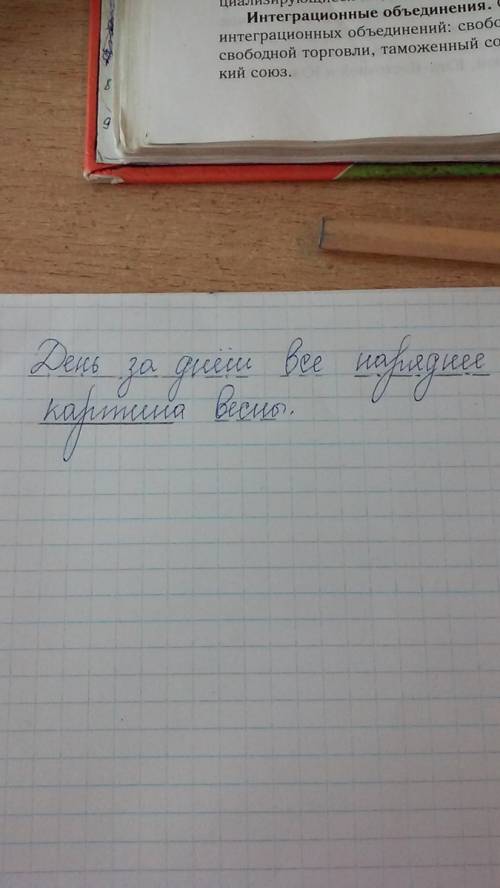 циализирующиеся
Интеграционные объединения.
интеграционных объединений: свобо
свободной торговли, таможенный со
кий союз.
8
9
День за днём все наряднее
картина весны.